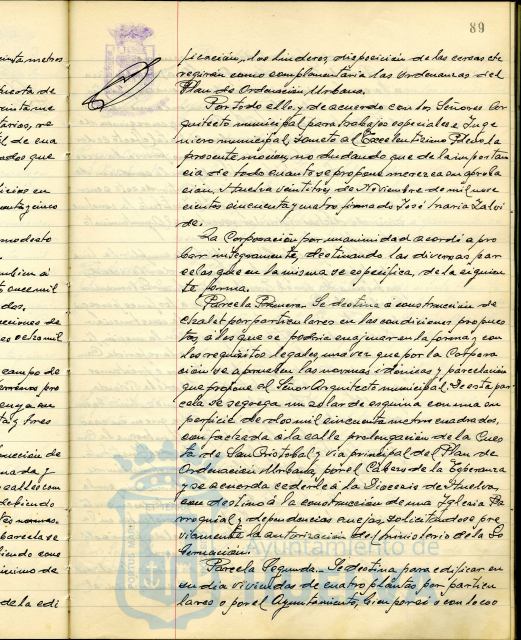 89
ficación, los linderos, disposición de las cercas etc
regirán como complementaria las Ordenanzas del
Plan de Ordenación Urbana.
Por todo ello, y de acuerdo con los Señores Ar
quitecto municipal para trabajos especiales e Inge
niero municipal, someto al Excelentísimo Pleno la
presente moción, no dudando que de la importan
cia de todo cuanto se propone merezca su aproba
ción. Huelva veintitres de Noviembre de mil nove
cientos cincuenta y cuatro firmado José María Zalvi
de.
La Corporación por unanimidad acordó apro
bar integramente, destinando las diversas par
celas que en la misma se especifica, de la siguien
te forma.
Parcela Primera. Se destina a construcción de
chalet por particulares en las condiciones propues
tas, a los que se podría enajenar en la forma y con
los requisitos legales, una vez que por la Corpora
ción se aprueben las normas idóneas y parcelación
que propone al Señor Arquitecto municipal. De esta par
cela se segrega un solar de esquina con una su
perficie de dos mil cincuenta metros cuadrados,
con fachada a la calle prolongación de la Cues
ta de San Cristobal y vía principal del Plan de
Ordenación Urbana, por el Cabezo de la Esperanza
y se acuerda cederle a la Diocesis de Huelva,
con destino á la construcción de una Iglesia Pa
rroquial y dependencias anejas, solicitandose pre
viamente la autorización del Ministerio de la Go
bernación.
Parcela Segunda. Se destina para edificar en
su día viviendas de cuatro plantas por particu
lares o por el Ayuntamiento, bien por sí o con
Ayuntamiento de